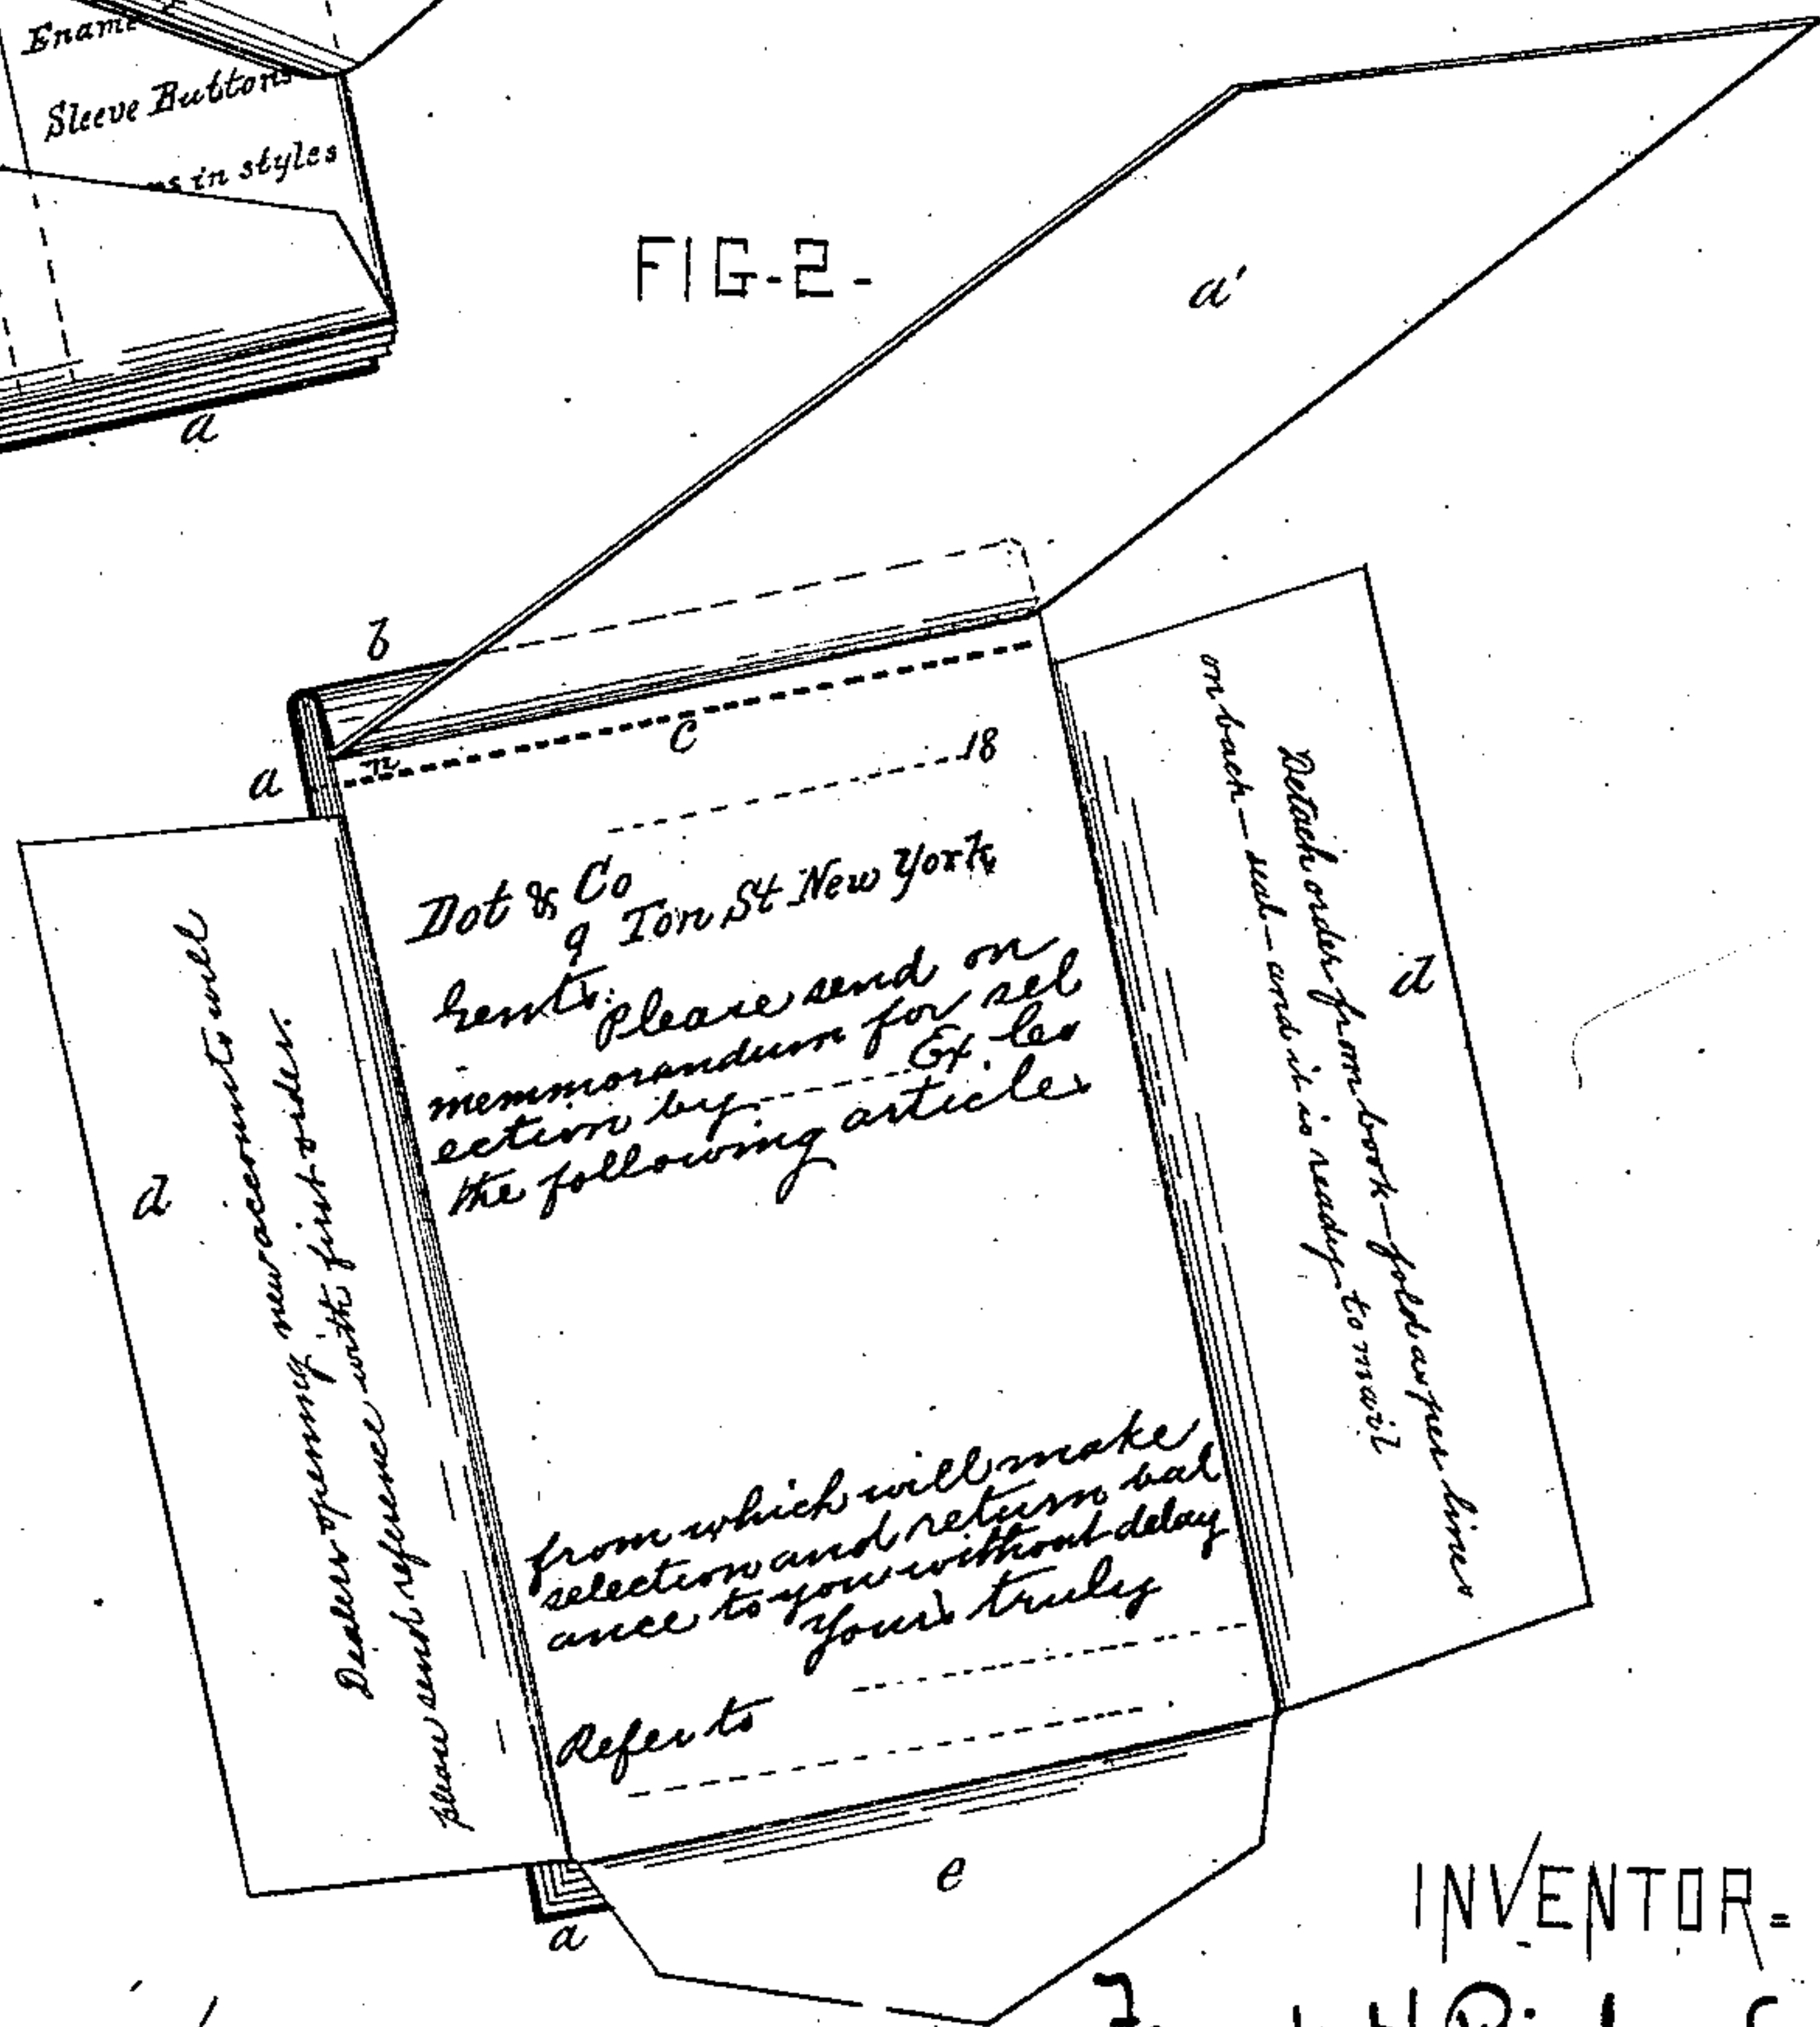 Sleeve Buttons
in styles
a
FIG-2-
a'
b
a
n
c
18
Dot & Co
9 Ton St New York
Gents:
Please send on
memmorandum for sel
ection by Ex. les
the following articles
from which will make
selection and return bal
ance to you without delay
Yours truly
Refer to
d
Dealers opening new accounts will
please send reference with first order.
d
Detach order from book—fold as per lines
on back—seal—and it is ready to mail
e
a
INVENTOR=